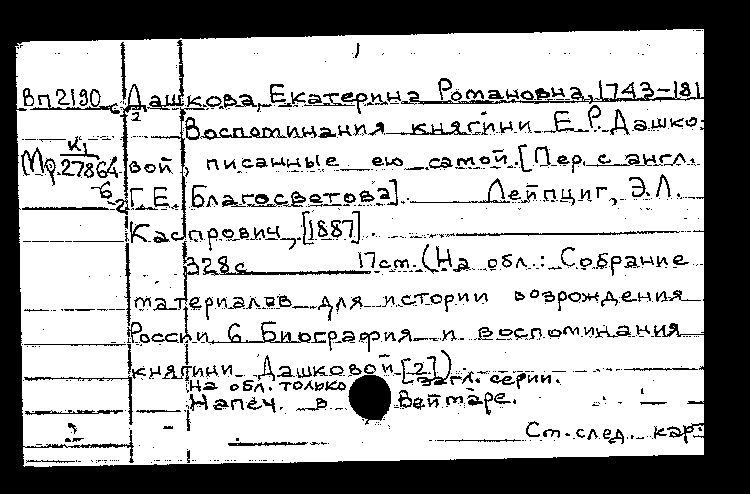 Вп2190 Дашкова, Екатерина Романовна, 1743-181
Воспоминания княгини Е.Р. Дашко-
К1
Мф.27864 вой, писанные ею самой. [Пер. с англ.
-6
-2 Г.Е. Благосветова]. Лейпциг, Э.Л.
Каспрович, [1887].
328с 17см. (На обл.: Собрание
материалов для истории возрождения
России. 6. Биография и воспоминания
княгини Дашковой [2])
на обл. только загл. серии.
Напеч. в Веймаре.
См. след. кар